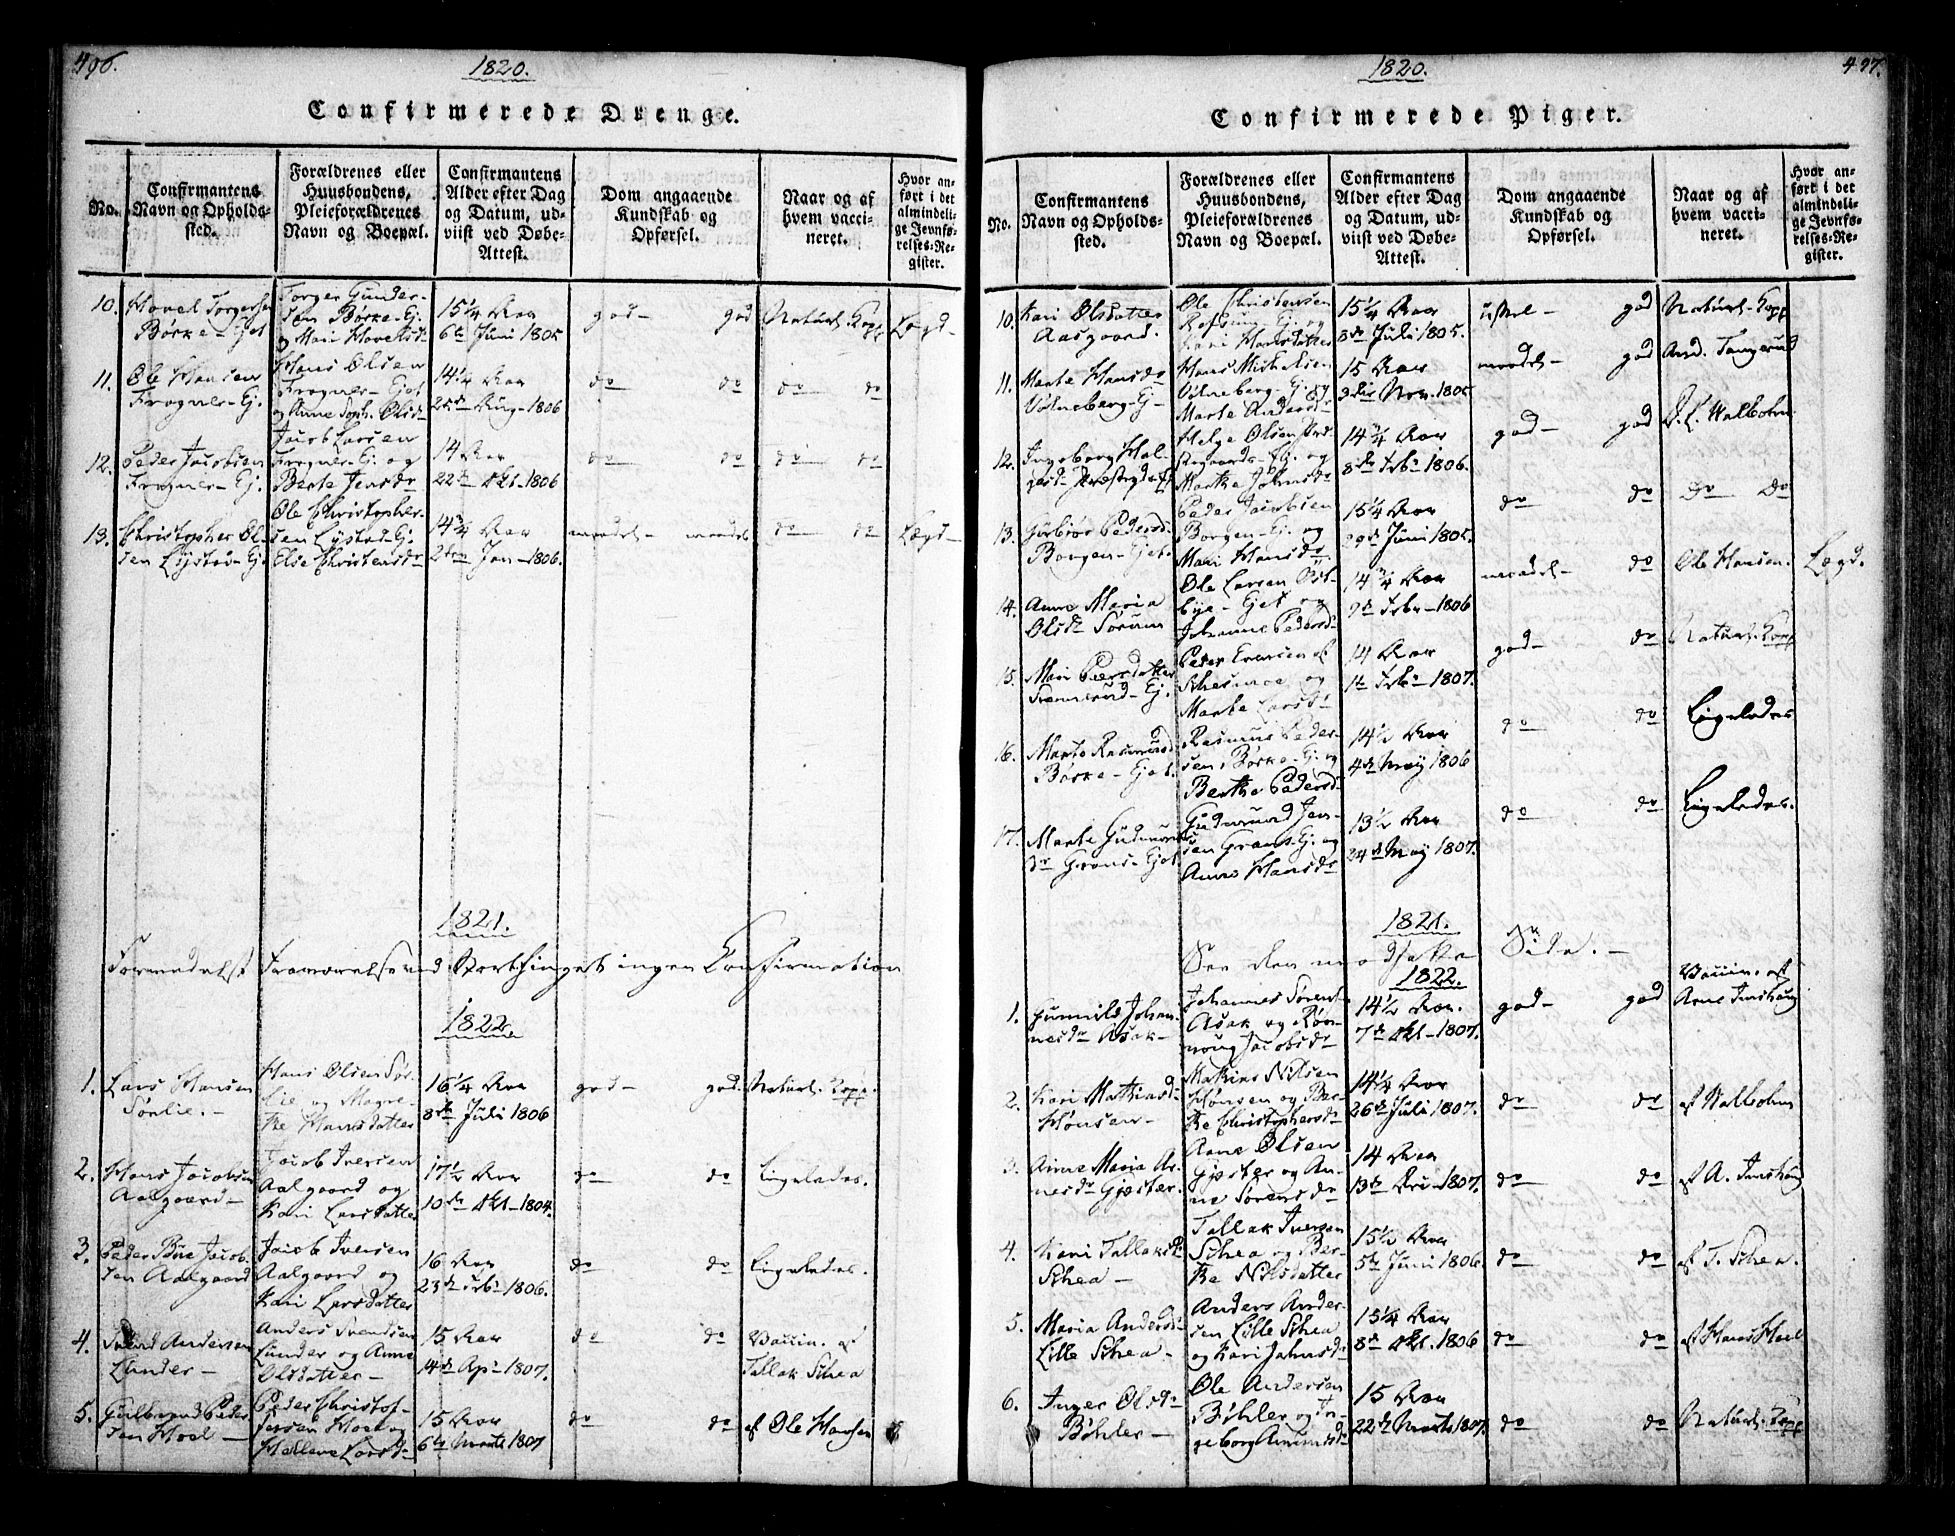 496.
1820.
Confirmerede Drenge.
No.
Confirmantens
Navn og Opholds-
sted.
Forældrenes eller
Huusbondens,
Pleieforældrenes
Navn og Boepæl.
Confirmantens
Alder efter Dag
og Datum, ud-
viist ved Døbe-
Attest.
Dom angaaende
Kundskab og
Opførsel.
Naar og af
hvem vacci-
neret.
Hvor an-
ført i det
almindeli-
ge Jevnfø-
relses-Re-
gister.
10.
Hovel Torgersen
Børke - Ejet
Torger Gunder-
sen Børke - Ej.
og Mari Hovelsdr
15 1/4 Aar
6te Juni 1805
god - god
Naturl. Kopp
Lægd -
11.
Ole Hansen
Frogner - Ej.
Hans Olsen
Frogner - Ejet
og Anne Soph. Olsdr
14 1/4 Aar
25de Aug - 1806
do do
do do
12.
Peder Jacobsen
Frogner - Ej.
Jacob Larsen
Frogner - Ej. og
Berte Jensdr
14 Aar
22de Okt - 1806
do do
do do
13.
Christopher Ol-
sen Lystad - Ej.
Ole Christopher-
sen Lystad - Ej.
Else Christensdr
14 3/4 Aar
2den Jan - 1806.
maadel - maadel
do do
Lægd -
1821.
Formedelst Fraværelse ved Storthinget ingen Confirmation
1822.
1.
Lars Hansen
Sørlie. -
Hans Olsen Sør-
lie og Magre-
the Hansdatter
16 1/4 Aar
8de Juli 1806
god - god.
Naturl. Kopp.
2.
Hans Jacobsen
Aalgaard -
Jacob Iversen
Aalgaard og
Kari Larsdatter
17 1/2 Aar
10de Okt - 1804.
do do
Ligeledes.
3.
Peder Bue Jacob-
sen Aalgaard
Jacob Iversen
Aalgaard og
Kari Larsdatter
16 Aar
23de Febr 1806.
do do
Ligeledes.
4.
Svend Andersen
Lunder -
Anders Svendsen
Lunder og Anne
Olsdatter -
15 Aar
4de Apr 1807.
do do
Vaccin. af
Tallak Schea
5.
Gulbrand Peder
sen Hoel -
Peder Christof-
fersen Hoel og
Hellene Larsd -
15 Aar
6te Marts 1807
do do
af Ole Hansen
497.
1820.
Confirmerede Piger.
No.
Confirmantens
Navn og Opholds-
sted.
Forældrenes eller
Huusbondens,
Pleieforældrenes
Navn og Boepæl.
Confirmantens
Alder efter Dag
og Datum, ud-
viist ved Døbe-
Attest.
Dom angaaende
Kundskab og
Opførsel.
Naar og af
hvem vacci-
neret.
Hvor an-
ført i det
almindeli-
ge Jevnfø-
relses-Re-
gister.
10.
Kari Olsdatter
Aasgaard.
Ole Christensen
Ej. og
Kari Hansdatter
15 1/4 Aar
3de Juli 1805.
god
Naturl. Kopp
11.
Marte Hansdr
Holneberg - Ej -
Hans Michelsen
Holneberg - Ej. og
Marte Andersdr
15 Aar
Nov. 1805
maadel - god
And. Tangerud
12.
Ingeborg Hel-
gesdr
Helge Olsen Præ-
stegaards - Ej. og
Marthe Johnsdr
14 3/4 Aar
8de Febr 1806.
god - god
Walbohm
13.
Gurbiør Pedersd
Borgen - Ejet.
Peder Jacobsen
Borgen - Ej. og
Mari Hansdr
15 1/4 Aar
29de Juni 1805.
do do
Do Do
14.
Anne Maria
Olsdr Sørum
Ole Larsen Øst-
bye - Ejet og
Johanne Pedersd
14 3/4 Aar
9de Febr - 1806
maadel - do
Ole Hansen.
Lægd.
15.
Mari Peersdatter
Svennerud - Ej.
Peder Evensen af
og
Marte Larsdr
14 Aar
1te Febr 1807.
god - do
Naturl. Kopp
16.
Marte Rasmusd
Børke - Ejet.
Rasmus Peder-
sen, Børke - Ej. og
Berthe Pedersd
14 1/2 Aar
4de May 1806
do do
Ligeledes
17.
Marte Gudmunds
dr Grans - Ejet.
Gudmund Jen-
sen Grans - Ej. og
Anne Hansdr
13 1/2 Aar
24de May 1807.
do do
Ligeledes.
1821.
See den modsatte Side. -
1822.
1.
Gunnild Johan-
nesdr Asak -
Johannes Sørens.
Asak og Røn-
noug Jacobsdr
14 1/2 Aar.
7de Okt - 1807.
god - god
Vaccin. af
Arne Imshoug
2.
Kari Mathiasd
Hønsen -
Mathias Nilsen
Hønsen og Ber-
the Christophersd
14 1/4 Aar
26de Juli 1807.
do do
af Walbohm
3.
Anne Maria Ar-
nesdr Gjester.
Arne Olsen
Gjester og An-
ne Sørensdr
14 Aar
1807.
do do
af A. Imshoug
4.
Kari Tallaksdr
Schea -
Tallak Iversen
Schea og Ber-
the Nilsdatter
15 1/2 Aar
5te Juni 1806.
do do
af T. Schea.
5.
Maria Andersdr
Lille Schea -
Anders Ander-
sen Lille Schea
og Kari Johnsdr
15 1/4 Aar
8de Okt. 1806
do do
af Hans Hoel
6.
Inger Olsdr
Bøhler -
Ole Andersen
Bøhler og In-
geborg Amundsdr
15 Aar
22de Marts 1807.
do do
Naturl. Kopp